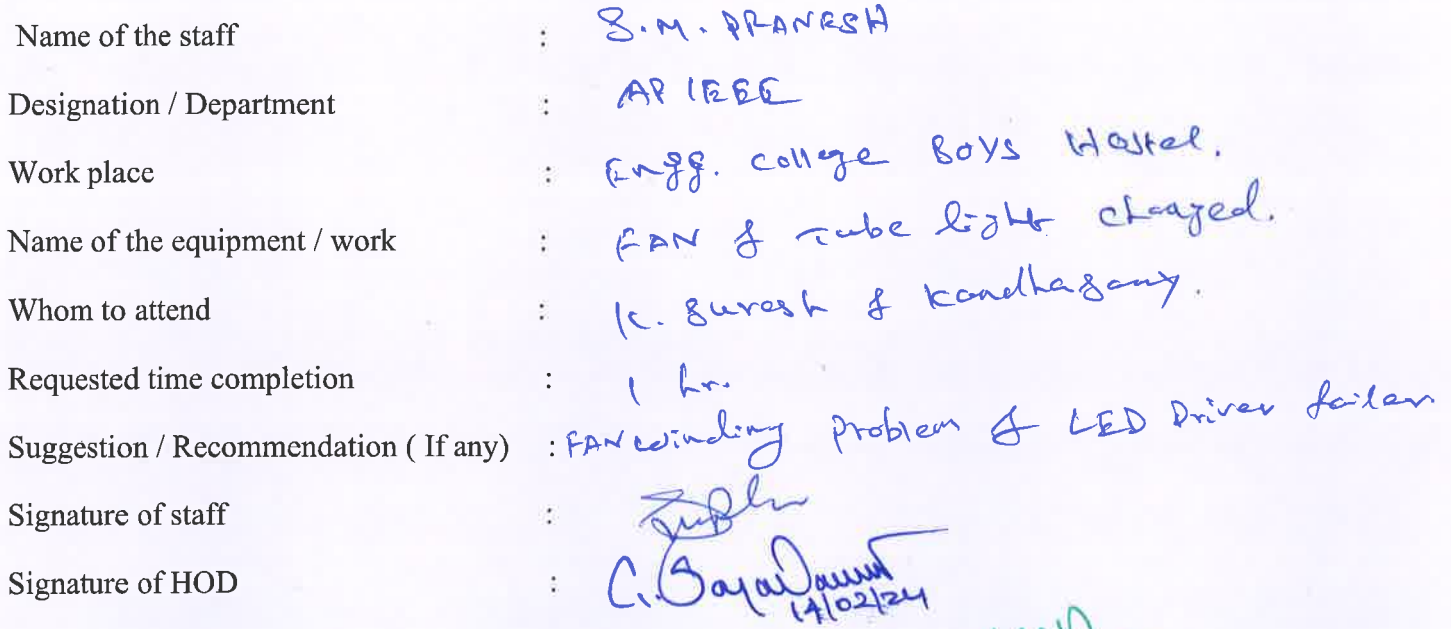 Name of the staff : S.M. PRANESH
Designation / Department : AP / EEE
Work place : Engg. College Boys Hostel.
Name of the equipment / work : FAN & Tube light changed.
Whom to attend : K. Suresh & Kandhasamy.
Requested time completion : 1 hr.
Suggestion / Recommendation ( If any) : FAN winding problem & LED Driver failer
Signature of staff :
Signature of HOD :
14/02/24